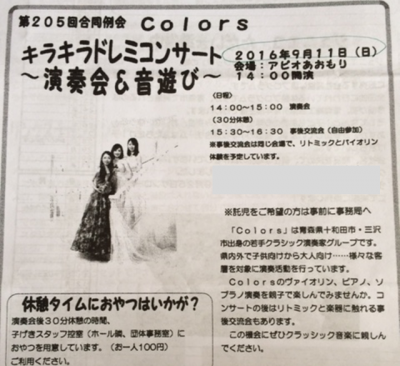 第205回合同例会 Colors
キラキラドレミコンサート
～演奏会&音遊び～
2016年9月11日(日)
会場:アピオあおもり
14:00開演
〈日程〉
14:00～15:00 演奏会
(30分休憩)
15:30～16:30 事後交流会(自由参加)
※事後交流会は同じ会場で、リトミックとバイオリン
体験を予定しています。
※託児をご希望の方は事前に事務局へ
「Colors」は青森県十和田市・三沢
市出身の若手クラシック演奏家グループです。
県内外で子供向けから大人向け……様々な客
層を対象に演奏活動を行っています。
Colorsのヴァイオリン、ピアノ、ソ
プラノ演奏を親子で楽しんでみませんか。コ
ンサートの後はリトミックと楽器に触れる事
後交流会もあります。
この機会にぜひクラシック音楽に親しん
でください。
休憩タイムにおやつはいかが?
演奏会後30分休憩の時間、
子げきスタッフ控室(ホール隣、団体事務室)に
おやつを用意しています。(お一人100円)
ご利用ください。